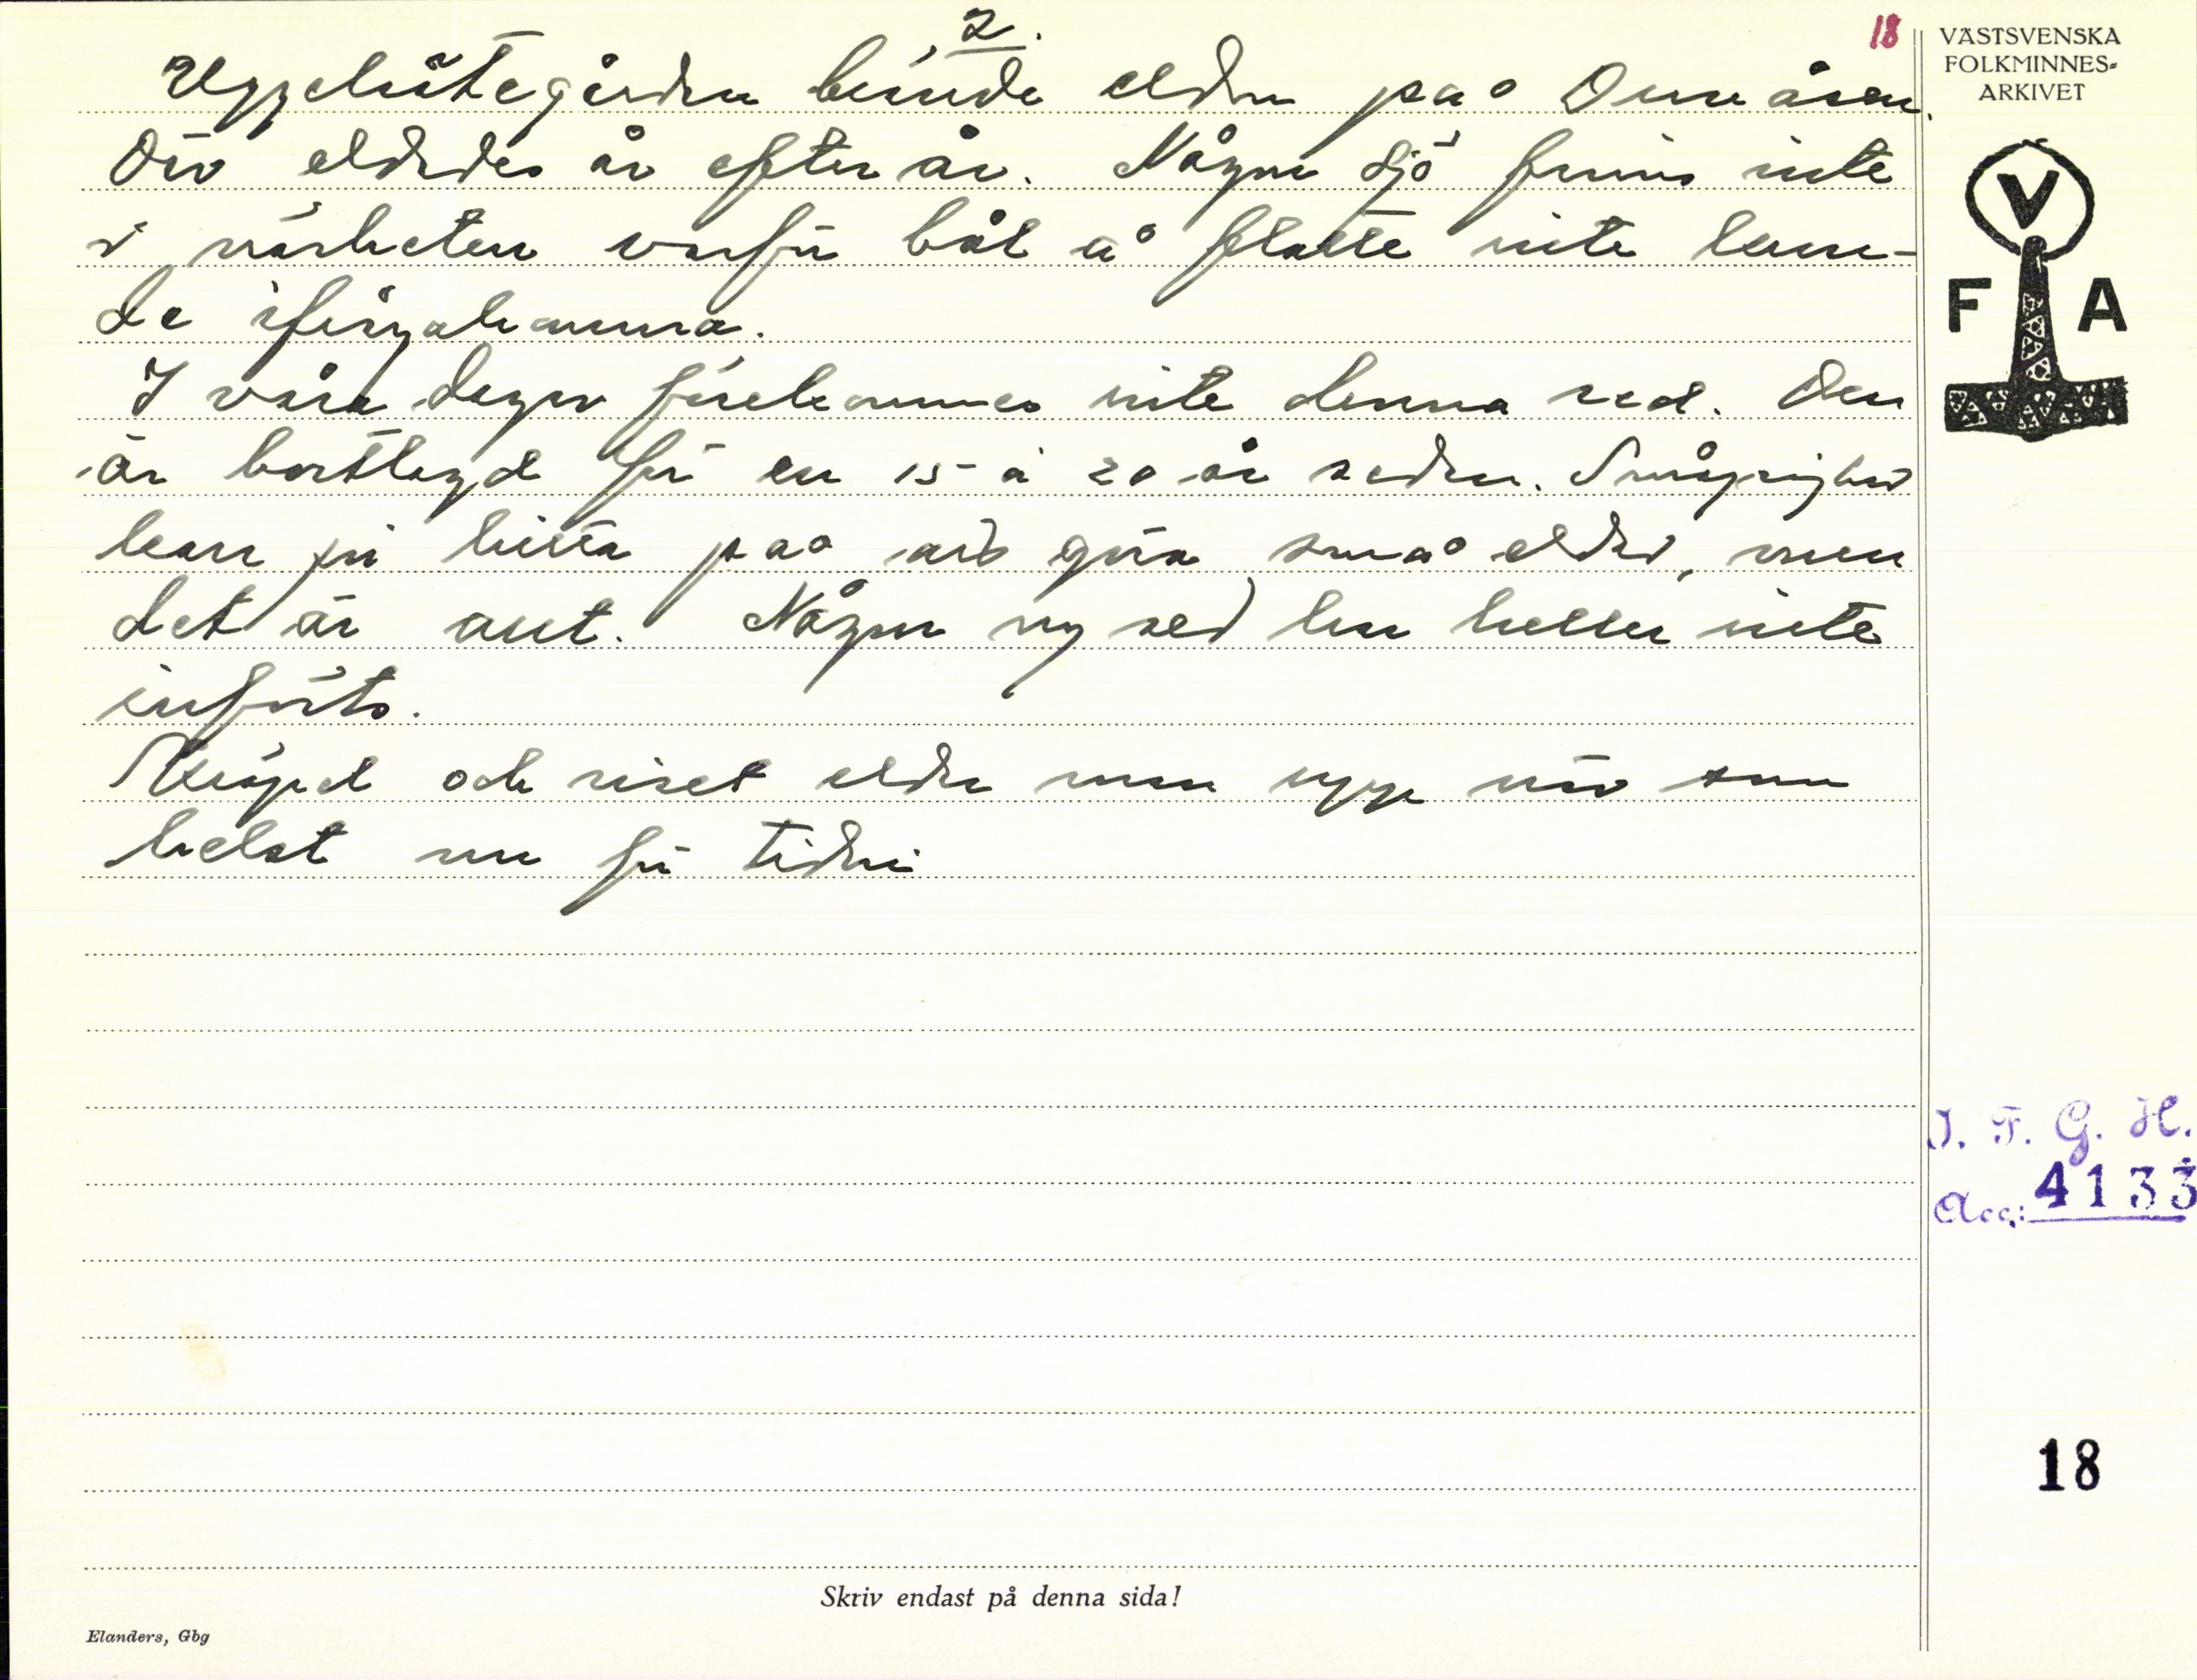 2.
18
VÄSTSVENSKA
FOLKMINNES-
ARKIVET
brände elden på Onn åsen.
Där eldades år efter år. Någon sjö finns inte
i närheten varför bål på flotte inte kun-
de ifrågakomma.
I våra dagar förekommer inte denna sed. Den
är bortlagd för en 15 à 20 år sedan. Småpojkar
kan ju hitta på att göra små eldar, men
det är allt. Någon ny sed har heller inte
införts.
Skräpet och riset eldar man upp när som
helst nu för tiden
V
F A
I. F. G. H.
Acc: 4133
18
Skriv endast på denna sida!
Elanders, Gbg